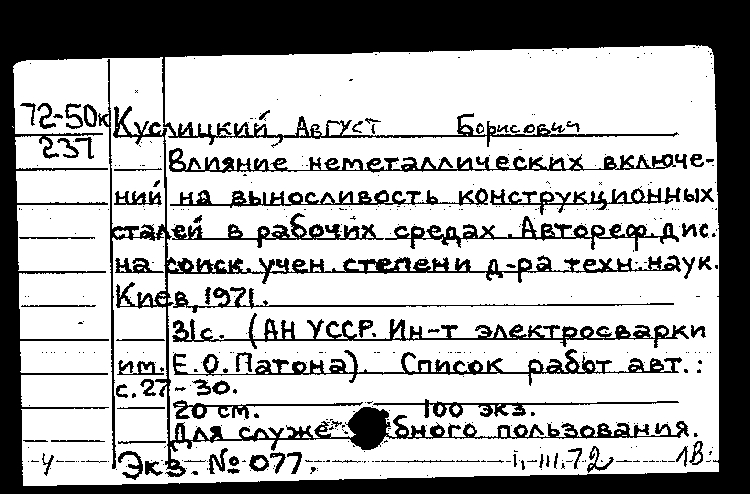 72-50к
237
Куслицкий, Август Борисович
Влияние неметаллических включе-
ний на выносливость конструкционных
сталей в рабочих средах. Автореф. дис.
на соиск. учен. степени д-ра техн. наук.
Киев, 1971.
31с. (АН УССР. Ин-т электросварки
им. Е.О.Патона). Список работ авт.:
с. 27-30.
20 см. 100 экз.
Для служебного пользования.
Экз. №077.